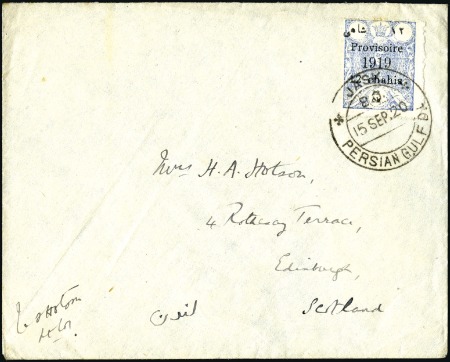 ۱۲ شاهی
Provisoire
1919
Chahis
JASK
15 SEP. 20
PERSIAN GULF
Mrs H. A. Hotson,
4 Rothesay Terrace,
Edinburgh,
Scotland
لندن
Hotson